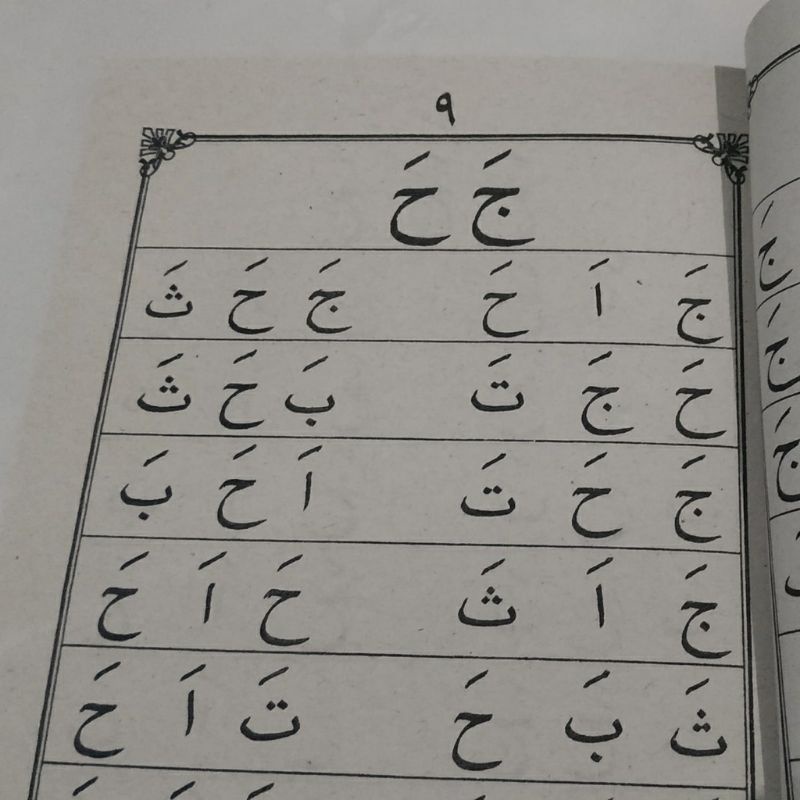 ٩
جَ حَ
جَ اَ حَ جَ حَ ثَ
حَ جَ تَ بَ حَ ثَ
جَ حَ تَ اَ حَ بَ
جَ اَ ثَ حَ اَ حَ
ثَ بَ حَ تَ اَ حَ